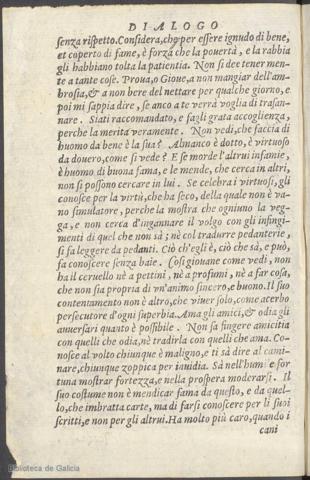 DIALOGO
senza rispetto. Considera, che per essere ignudo di bene,
et coperto di fame, è forza che la pouertà, e la rabbia
gli habbiano tolta la patientia. Non si dee tener men-
te a tante cose. Proua, o Gioue, a non mangiar dell'am-
brosia, & a non bere del nettare per qualche giorno, e
poi mi sappia dire, se anco a te verrà voglia di trasan-
nare. Siati raccomandato, e fagli grata accoglienza,
perche la merita veramente. Non vedi, che faccia di
huomo da bene è la sua? Almanco è dotto, è virtuoso
da douero, come si vede? E se morde l'altrui infamie,
è huomo di buona fama, e le mende, che cerca in altri,
non si possono cercare in lui. Se celebra i virtuosi, gli
conosce per la virtù, che ha seco, della quale non è va-
no simulatore, perche la mostra che ogniuno la veg-
ga, e non cerca d'ingannare il volgo con gli infingi-
menti di quel che non sà; nè col tradurre pedanterie,
si fa leggere da pedanti. Ciò ch'egli è, ciò che sà, e può,
fa conoscere senza baie. Così giouane come vedi, non
ha il ceruello nè a pettini, nè a profumi, nè a far cosa,
che non sia propria di vn'animo sincero, e buono. Il suo
contentamento non è altro, che viuer solo, come acerbo
persecutore d'ogni superbia. Ama gli amici, & odia gli
auuersari quanto è possibile. Non sa fingere amicitia
con quelli che odia, nè tradirla con quelli che ama. Co-
nosce al volto chiunque è maligno, e ti sà dire al cami-
nare, chiunque zoppica per inuidia. Sà nell'humile for
tuna mostrar fortezza, e nella prospera moderarsi. Il
suo costume non è mendicar fama da questo, e da quel-
lo, che imbratta carte, ma di farsi conoscere per li suoi
scritti, e non per gli altrui. Ha molto più caro, quando i
cani
Biblioteca de Galicia